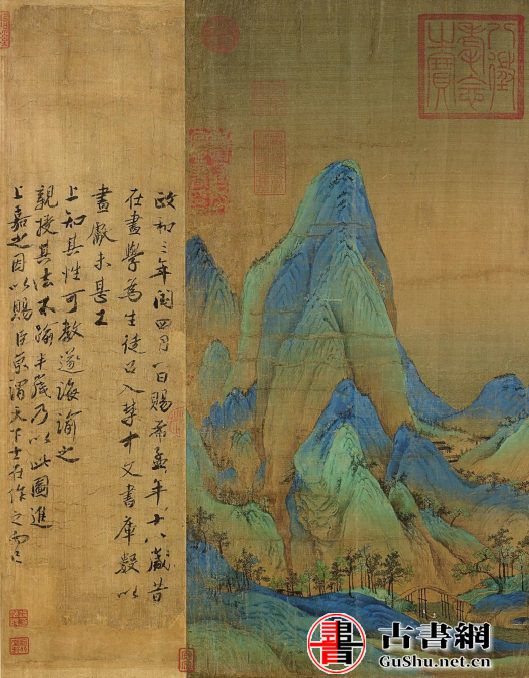 八徵
耄念
之寶
政和三年閏四月一日賜希孟年十八歲昔
在畫學為生徒召入禁中文書庫數以
畫獻未甚工
上知其性可教遂誨諭之
親授其法不踰半歲乃以此圖進
上嘉之因以賜臣京謂天下士在作之而已
書 古書網
GuShu.net.cn